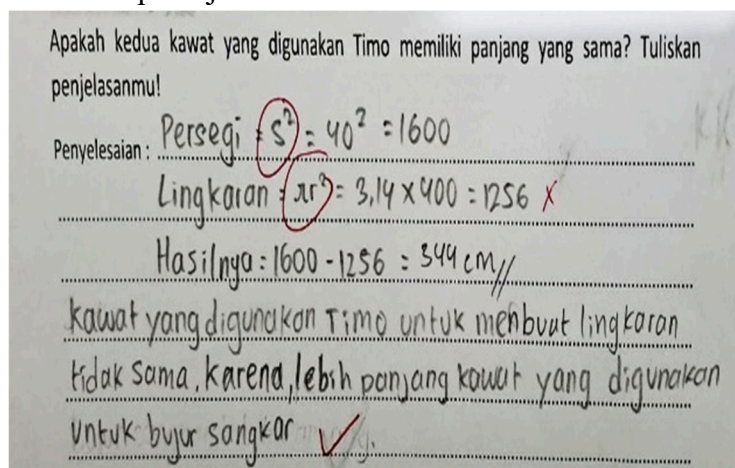 Apakah kedua kawat yang digunakan Timo memiliki panjang yang sama? Tuliskan
penjelasanmu!
Penyelesaian : Persegi = s² = 40² = 1600
Lingkaran = πr² = 3,14 × 400 = 1256 ×
Hasilnya = 1600 - 1256 = 344 cm //
kawat yang digunakan Timo untuk menbuat lingkaran
tidak sama, karena, lebih panjang kawat yang digunakan
untuk bujur sangkar ✓